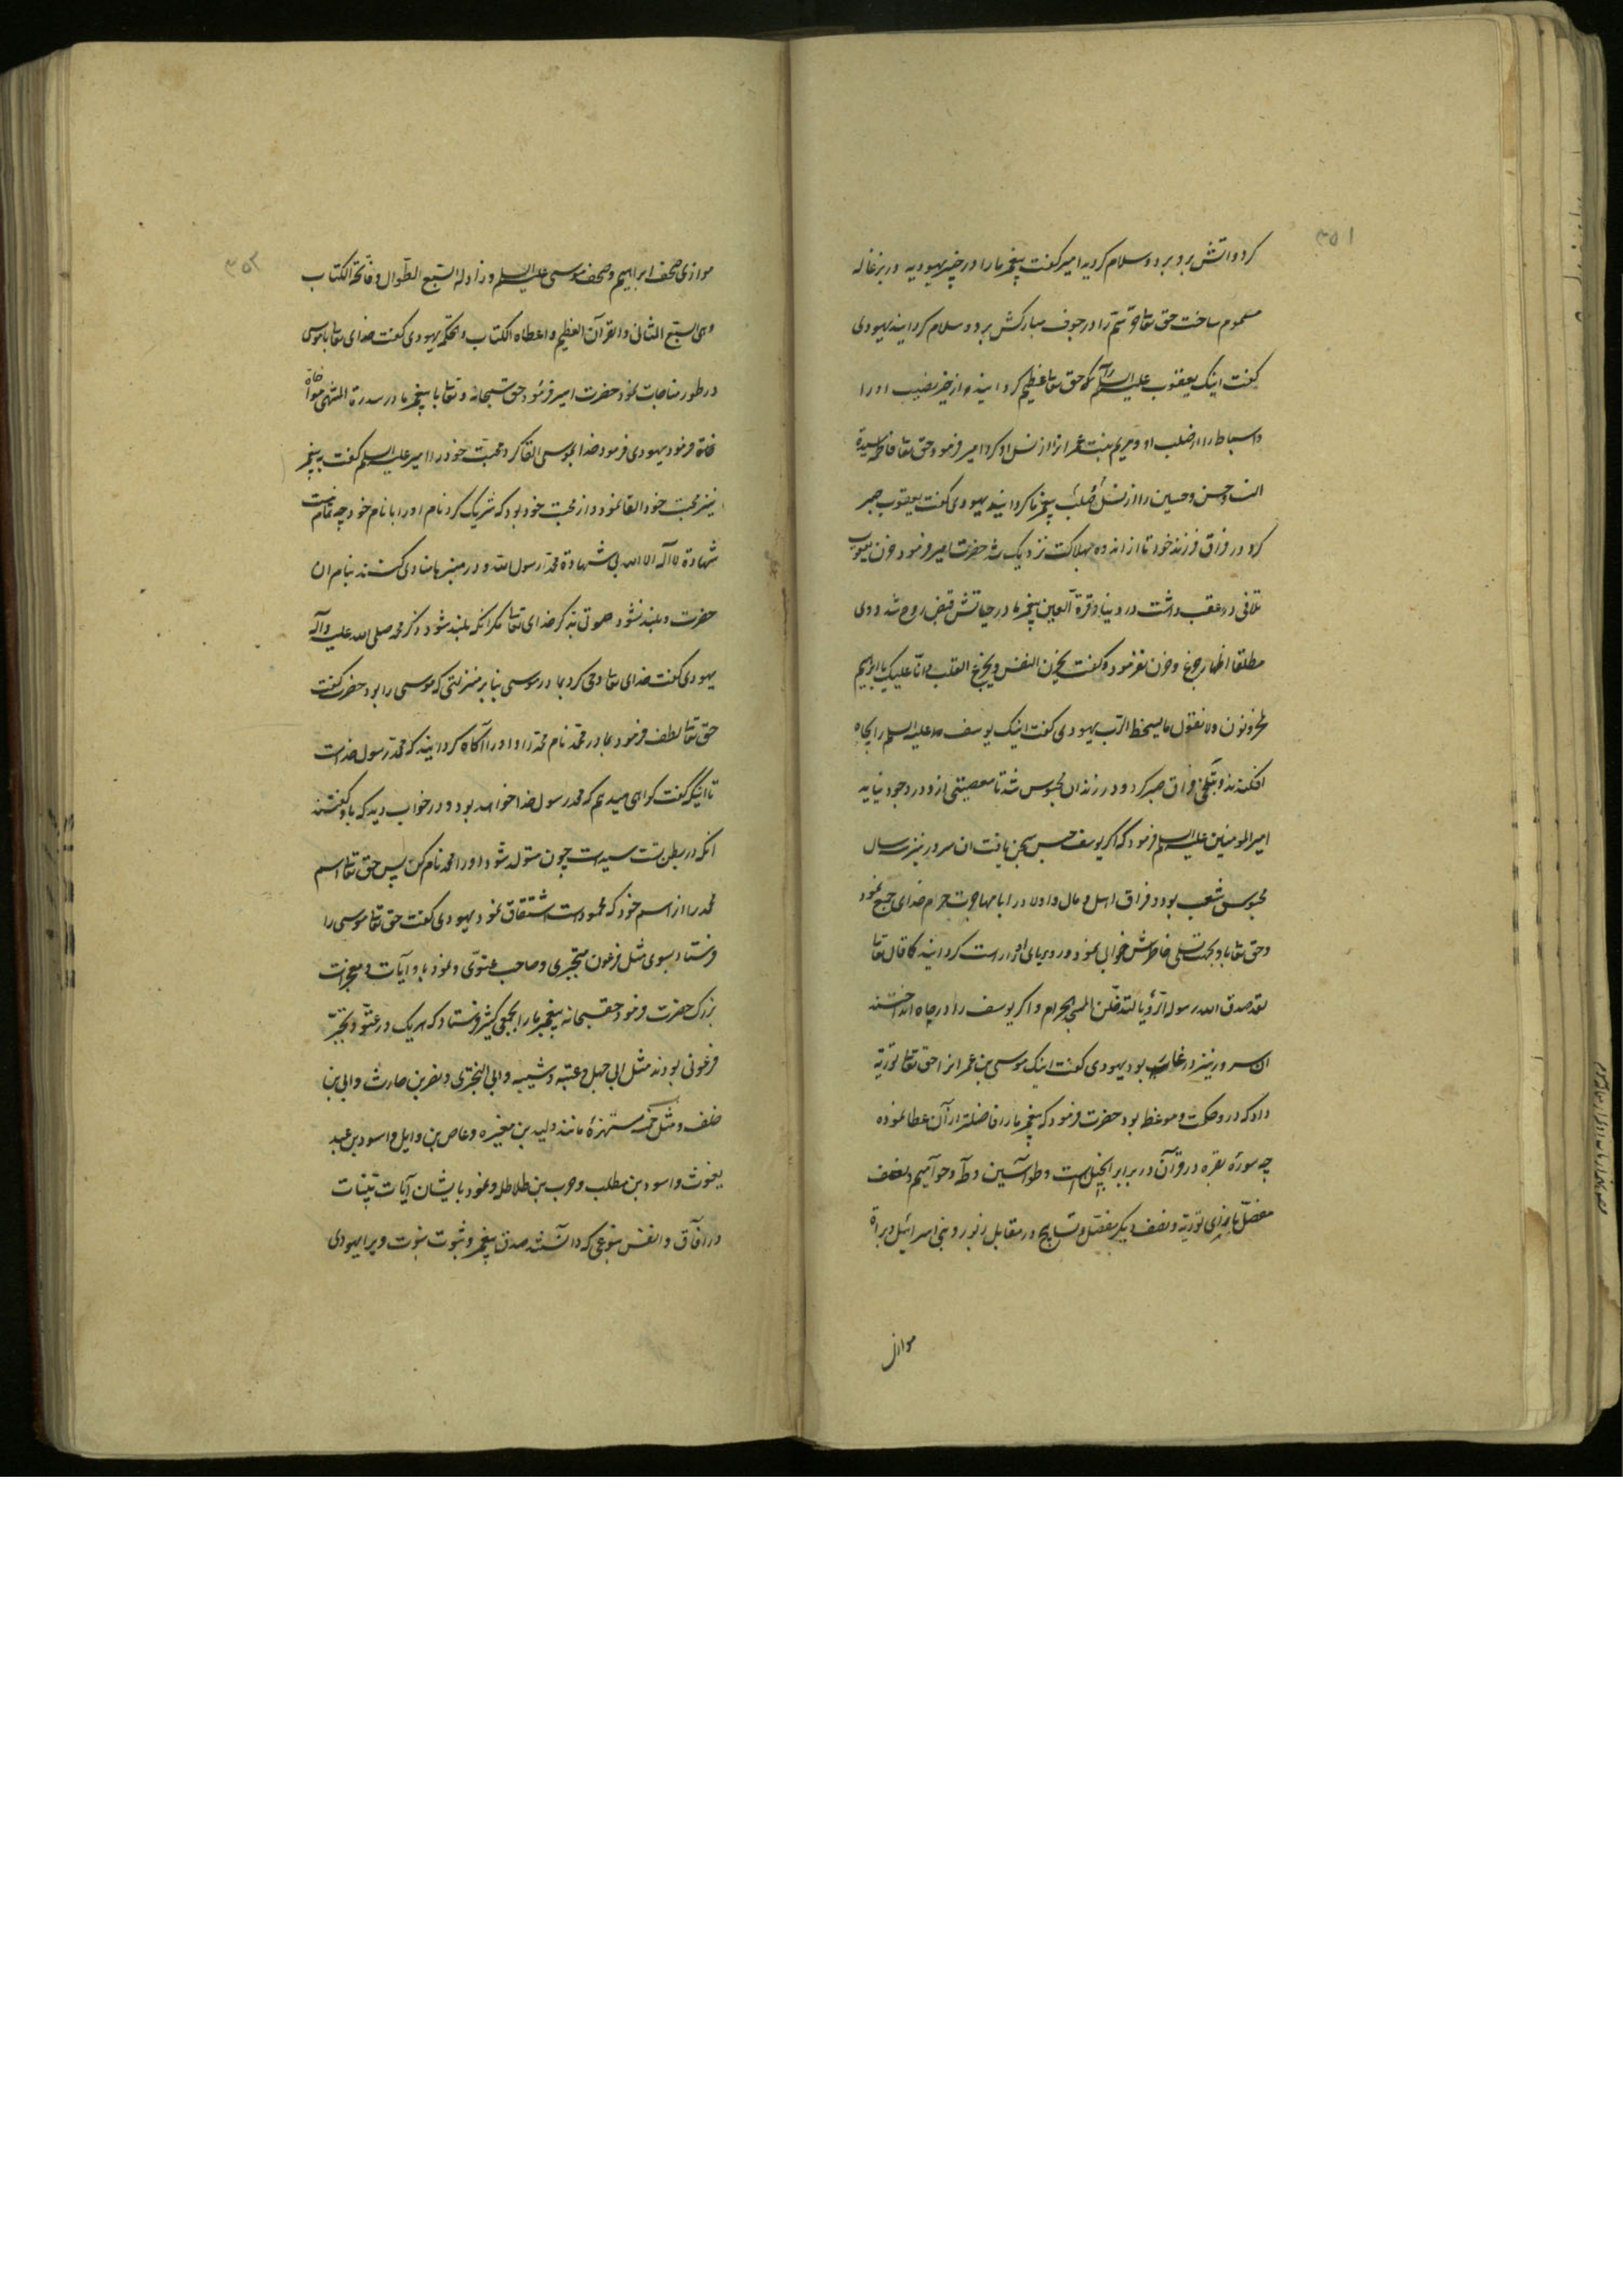 ۳۵۱
کرد و آتش برو برد و سلام کردید امیر گفت پیغمبر ما را در خیبر یهودیه در بزغاله
مسموم ساخت حق تعالی سمّ را در جوف مبارکش برد و سلام گردانید یهودی
گفت اینک یعقوب علیه السلام را که حق تعالی عظیم گردانید و از خیر نصیب او را
و اسباط را از صلب او و مریم بنت عمران را از نسل او کرد امیر فرمود حق تعالی فاطمه سیدة
النساء و حسن و حسین را از نسل و صلب پیغمبر ما گردانید یهودی گفت یعقوب صبر
کرد در فراق فرزند خود تا از اندوه بهلاکت نزدیک شد حضرت امیر فرمود حزن یعقوب
تلاقی در عقب داشت در دنیا و قرة العین پیغمبر ما در حیاتش قبض روح شد و وی
مطلقا اظهار جزع و حزن نفرمود و گفت یحزن النفس و یجزع القلب و انا علیک یا ابراهیم
لمحزونون و لا نقول ما یسخط الرب یهودی گفت اینک یوسف علیه السلم را بچاه
افکندند و بتلخی فراق صبر کرد و در زندان محبوس شد تا معصیتی ازو در وجود نیاید
امیر المومنین علیه السلم فرمود که اگر یوسف حبس سجن یافت ان سرور نیز سه سال
محبوس شعب بود و فراق اهل و مال و اولاد را با مهاجرت حرم خدای جمع نمود
و حق تعالی باو بجهت تسلی خاطرش خوابی نمود و رویای او را راست گردانید کما قال تعالی
لقد صدق الله رسوله الرؤیا لتدخلن المسجد الحرام و اگر یوسف را در چاه انداختند
ان سرور نیز در غار بود یهودی گفت اینک موسی بن عمران را حق تعالی توریة
داد که در و حکمت و موعظه بود حضرت فرمود که پیغمبر ما را فاضلتر از آن عطا نموده
چه سورة بقره در قرآن در برابر انجیل است و طواسین و طه و حوامیم و نصف
مفصل بازای توریة و نصف دیگر مفصل و تسابیح در مقابل زبور و بنی اسرائیل و براة
موازی
۳۵۲
موازی صحف ابراهیم و صحف موسی علیه السلم و زاد له السبع الطوال و فاتحة الکتاب
وهی السبع المثانی و القرآن العظیم و اعطاه الکتاب و الحکمة یهودی گفت خدای تعالی با موسی
در طور مناجات نمود حضرت امیر فرمود حق سبحانه و تعالی با پیغمبر ما در سدرة المنتهی
فرمود یهودی فرمود خدا بموسی القا کرد محبت خود را امیر علیه السلم گفت به پیغمبر
نیز محبت خود القا نمود و از محبت خود بود که شریک کرد نام او را با نام خود چه تمام نیست
شهادة لا اله الا الله بی شهادة محمد رسول الله و در منبرها منادی کنند بنام ان
حضرت و بلند نشود صوتی بذکر خدای تعالی مگر انکه بلند شود ذکر محمد صلی الله علیه وآله
یهودی گفت خدای تعالی وحی کرد بمادر موسی بنا بر منزلتی که موسی را بود حضرت گفت
حق تعالی لطف فرمود بمادر محمد نام محمد را و او را آگاه گردانید که محمد رسول خداست
تا اینکه گفت گواهی میدهم که محمد رسول خدا خواهد بود و در خواب دید که باو گفتند
انکه در بطن تست سیدست چون متولد شود او را محمد نام کن پس حق تعالی اسم
محمد را از اسم خود که محمودست اشتقاق نمود یهودی گفت حق تعالی موسی را
فرستاد بسوی مثل فرعون متجبری و صاحب عتوّی و نمود باو آیات و معجزات
بزرگ حضرت فرمود حق سبحانه پیغمبر ما را بجمعی کثیر فرستاد که هر یک در عتوّ و تجبّر
فرعونی بودند مثل ابی جهل و عتبه و شیبه و ابی البختری و نضر بن حارث و ابی بن
خلف و مثل خمسه مستهزئه مانند ولید بن مغیره و عاص بن وایل و اسود بن عبد
یغوث و اسود بن مطلب و حرب بن طلاطل و نمود بایشان آیات بینات
در آفاق و انفس بنوعی که دانستند صدق پیغمبر و ثبوت نبوت ویرا یهودی